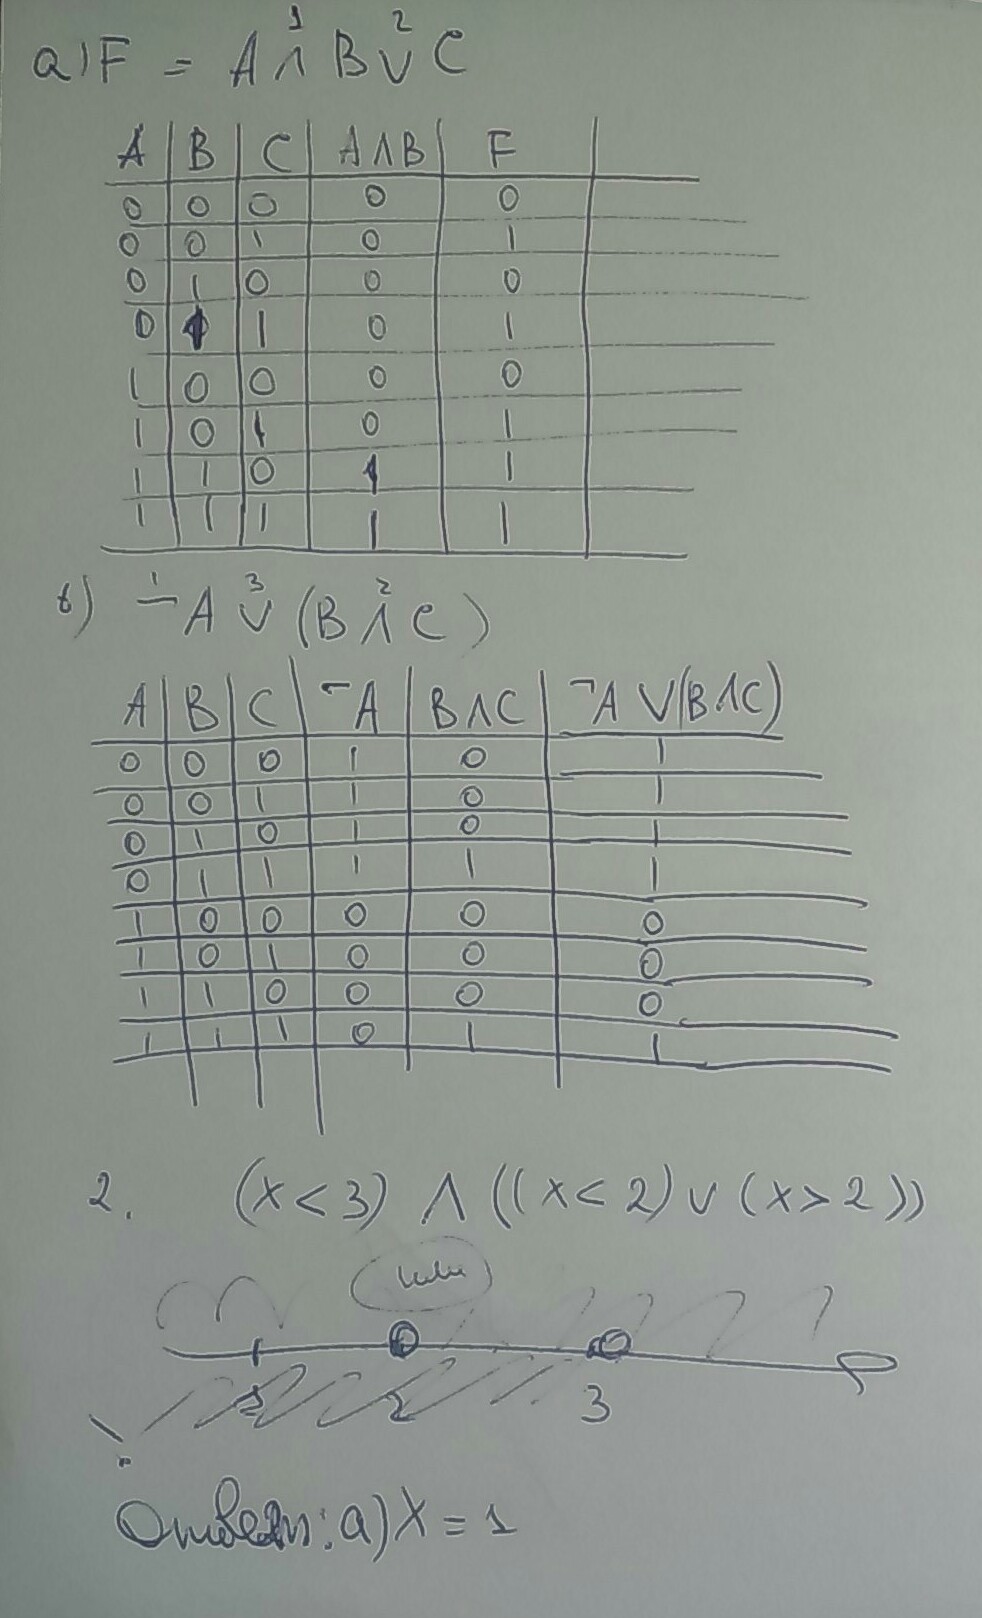 a) F = A ∧ B ∨ C
1 2
A B C A∧B F
0 0 0 0 0
0 0 1 0 1
0 1 0 0 0
0 1 1 0 1
1 0 0 0 0
1 0 1 0 1
1 1 0 1 1
1 1 1 1 1
в) ¬A ∨ (B ∧ C)
1 3 2
A B C ¬A B∧C ¬A ∨(B∧C)
0 0 0 1 0 1
0 0 1 1 0 1
0 1 0 1 0 1
0 1 1 1 1 1
1 0 0 0 0 0
1 0 1 0 0 0
1 1 0 0 0 0
1 1 1 0 1 1
2. (x<3) ∧ ((x<2) ∨ (x>2))
1 2 3
Ответ: а) X = 1